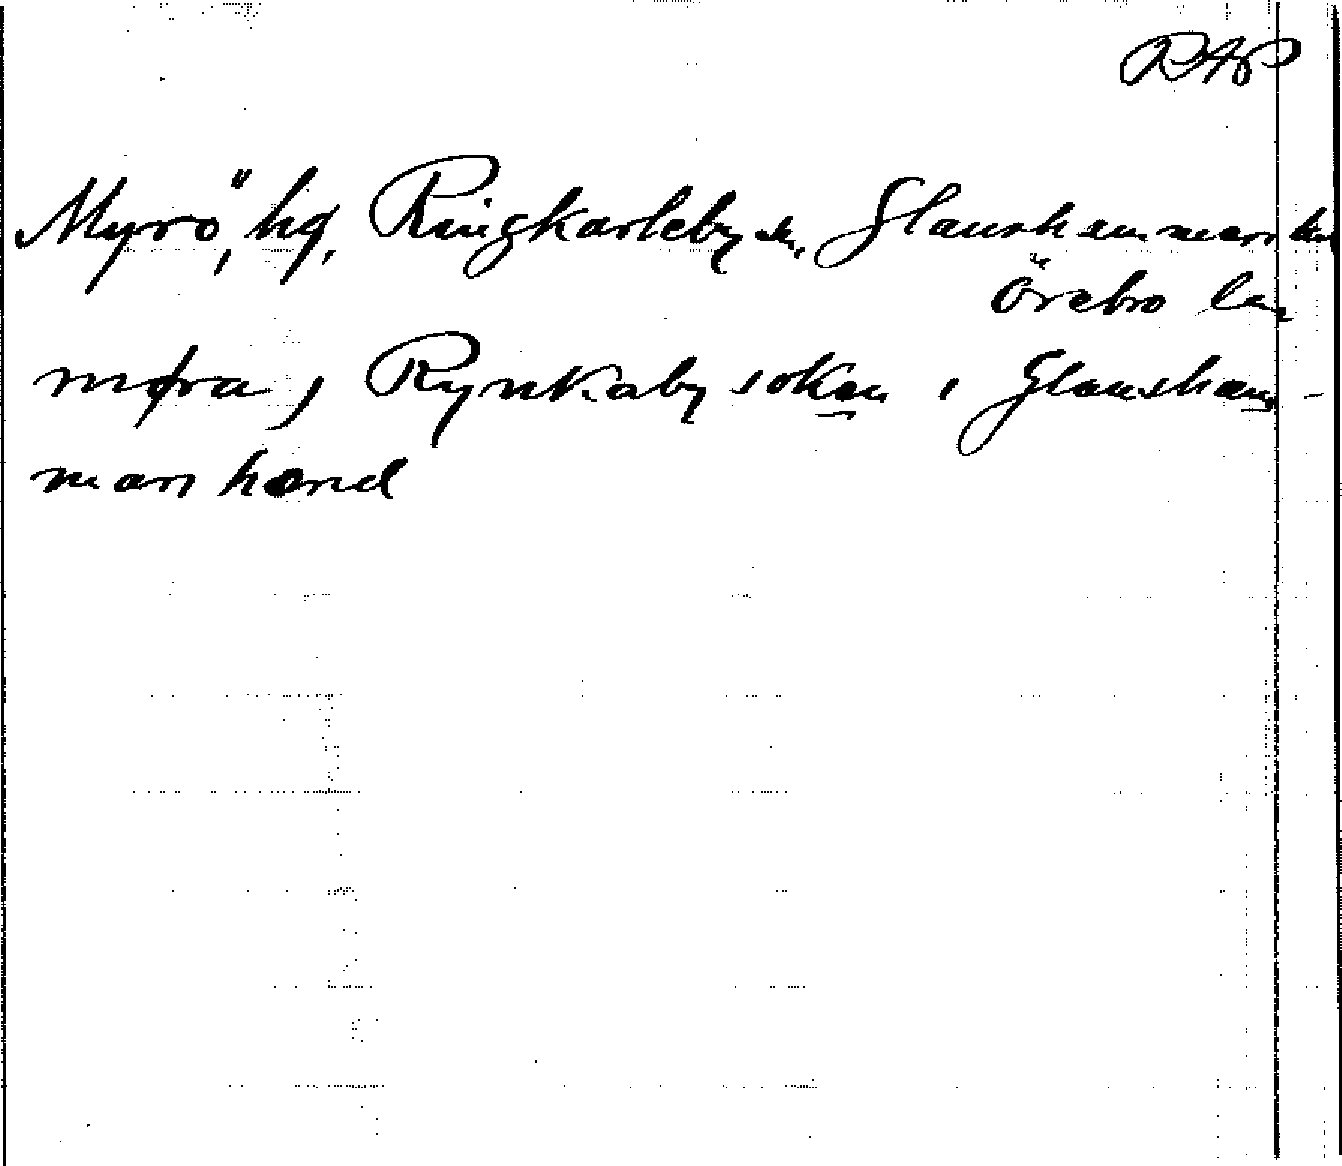 RAP
Myrö, hg, Ringkarleby sn, Glanshammars hd
Örebro län
møra i Rynkaby sokæn i Glansham-
mars hærad